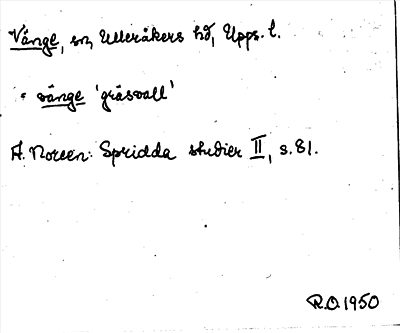 Vänge, sn, Ulleråkers hd, Upps. l.
< vänge 'gräsvall'
A. Noreen: Spridda studier II, s. 81.
R.O. 1950